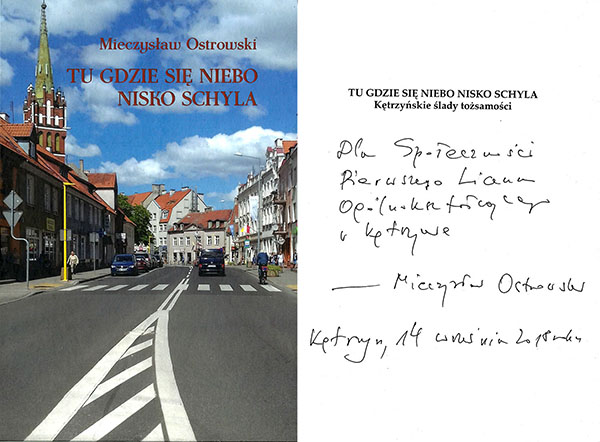 Mieczysław Ostrowski
TU GDZIE SIĘ NIEBO
NISKO SCHYLA
TU GDZIE SIĘ NIEBO NISKO SCHYLA
Kętrzyńskie ślady tożsamości
Dla Społeczności
Pierwszego Liceum
Ogólnokształcącego
w Kętrzynie
— Mieczysław Ostrowski
Kętrzyn, 14 września 2018 roku